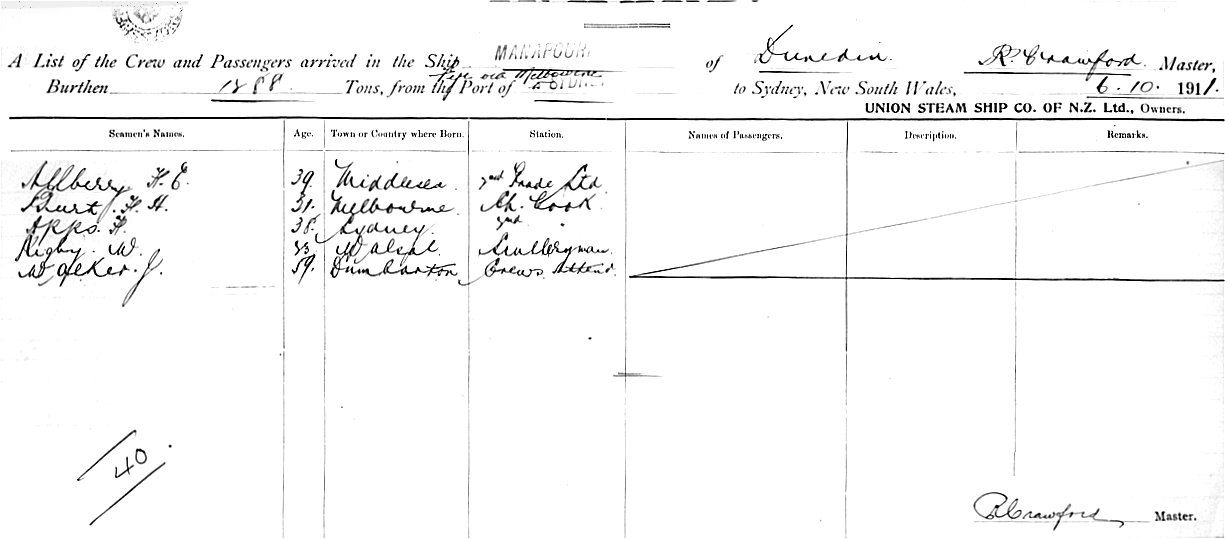 A List of the Crew and Passengers arrived in the Ship MANAPOURI of Dunedin R. Crawford Master,
Burthen 1288 Tons, from the Port of Melbourne to Sydney, New South Wales, 6.10.1911.
UNION STEAM SHIP CO. OF N.Z. Ltd., Owners.
Seamen's Names. Age. Town or Country where Born. Station. Names of Passengers. Description. Remarks.
H. E. 39. Middlesex 2nd Grade Std
Burt. H. H. 31. Melbourne. Ch. Cook
Apps. H. 38. Sydney. 2nd
Rigby. W. 23 Walsal Sculleryman.
Walker. J. 59. Dumbarton Crews Attend.
40
R Crawford Master.